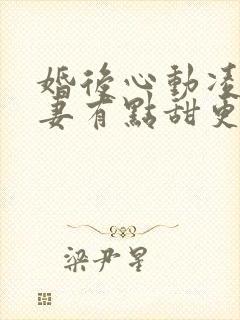 婚後心動凌
妻有點甜更
梁尹星